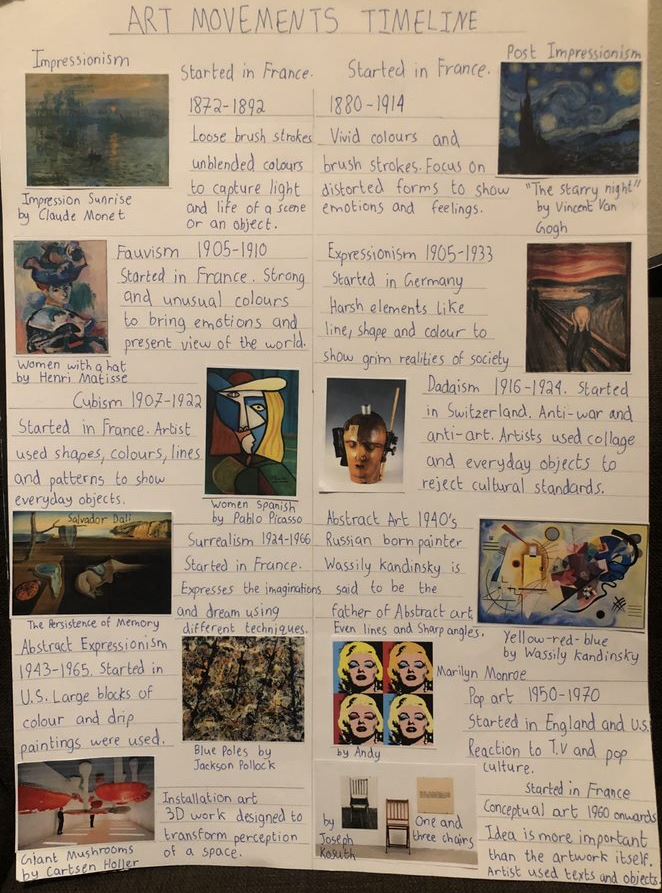 ART MOVEMENTS TIMELINE
Impressionism
Started in France.
1872-1892
Loose brush strokes
unblended colours
to capture light
and life of a scene
or an object.
Impression Sunrise
by Claude Monet
Post Impressionism
Started in France.
1880-1914
Vivid colours and
brush strokes. Focus on
distorted forms to show
emotions and feelings.
"The starry night"
by Vincent Van
Gogh
Fauvism 1905-1910
Started in France. Strong
and unusual colours
to bring emotions and
present view of the world.
Women with a hat
by Henri Matisse
Expressionism 1905-1933
Started in Germany
Harsh elements like
line, shape and colour to
show grim realities of society
Cubism 1907-1922
Started in France. Artist
used shapes, colours, lines
and patterns to show
everyday objects.
Women Spanish
by Pablo Picasso
Dadaism 1916-1924. Started
in Switzerland. Anti-war and
anti-art. Artists used collage
and everyday objects to
reject cultural standards.
Salvador Dali
The Persistence of Memory
Surrealism 1924-1966
Started in France.
Expresses the imaginations
and dream using
different techniques.
Abstract Art 1940's
Russian born painter
Wassily kandinsky is
said to be the
father of Abstract art.
Even lines and Sharp angles.
Yellow-red-blue
by Wassily kandinsky
Abstract Expressionism
1943-1965. Started in
U.S. Large blocks of
colour and drip
paintings were used.
Blue Poles by
Jackson Pollock
Marilyn Monroe
by Andy
Pop art 1950-1970
Started in England and U.S.
Reaction to T.V and pop
culture.
Installation art
3D work designed to
transform perception
of a space.
Giant Mushrooms
by Cartsen Holler
by
Joseph
Kosuth
One and
three chairs
Started in France
Conceptual art 1960 onwards
Idea is more important
than the artwork itself.
Artist used texts and objects